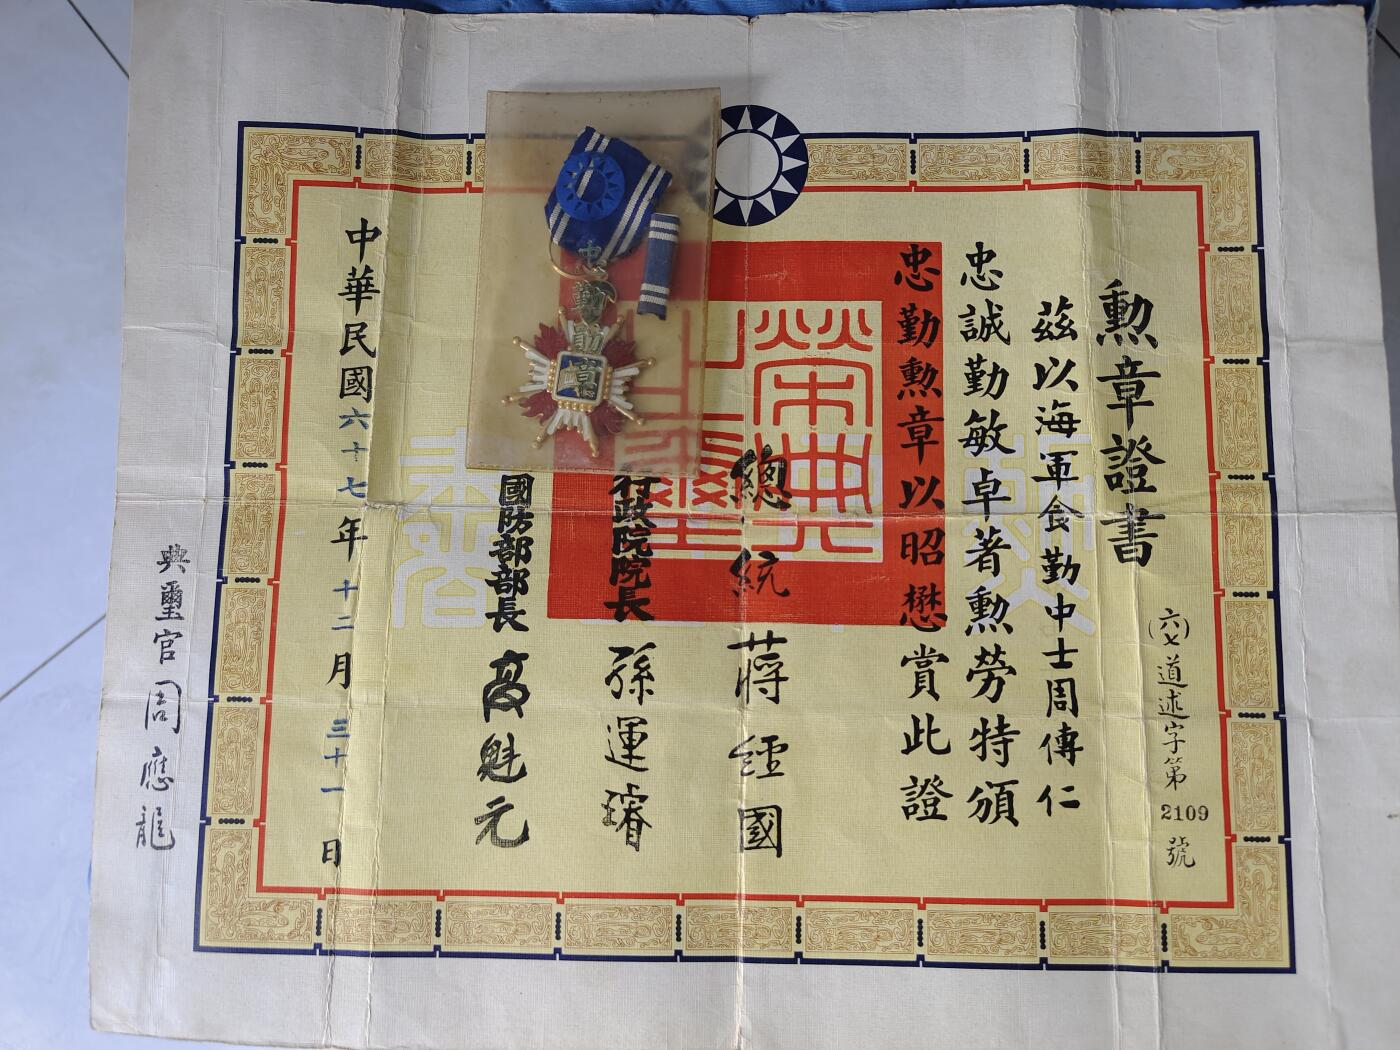 勲章證書
(六七)道述字第2109號
茲以海軍食勤中士周傳仁
忠誠勤敏卓著勲勞特頒
忠勤勲章以昭懋賞此證
總統 蔣經國
行政院院長 孫運璿
國防部部長 高魁元
中華民國六十七年十二月三十一日
典璽官 周應龍
忠勤勛章
榮典之璽